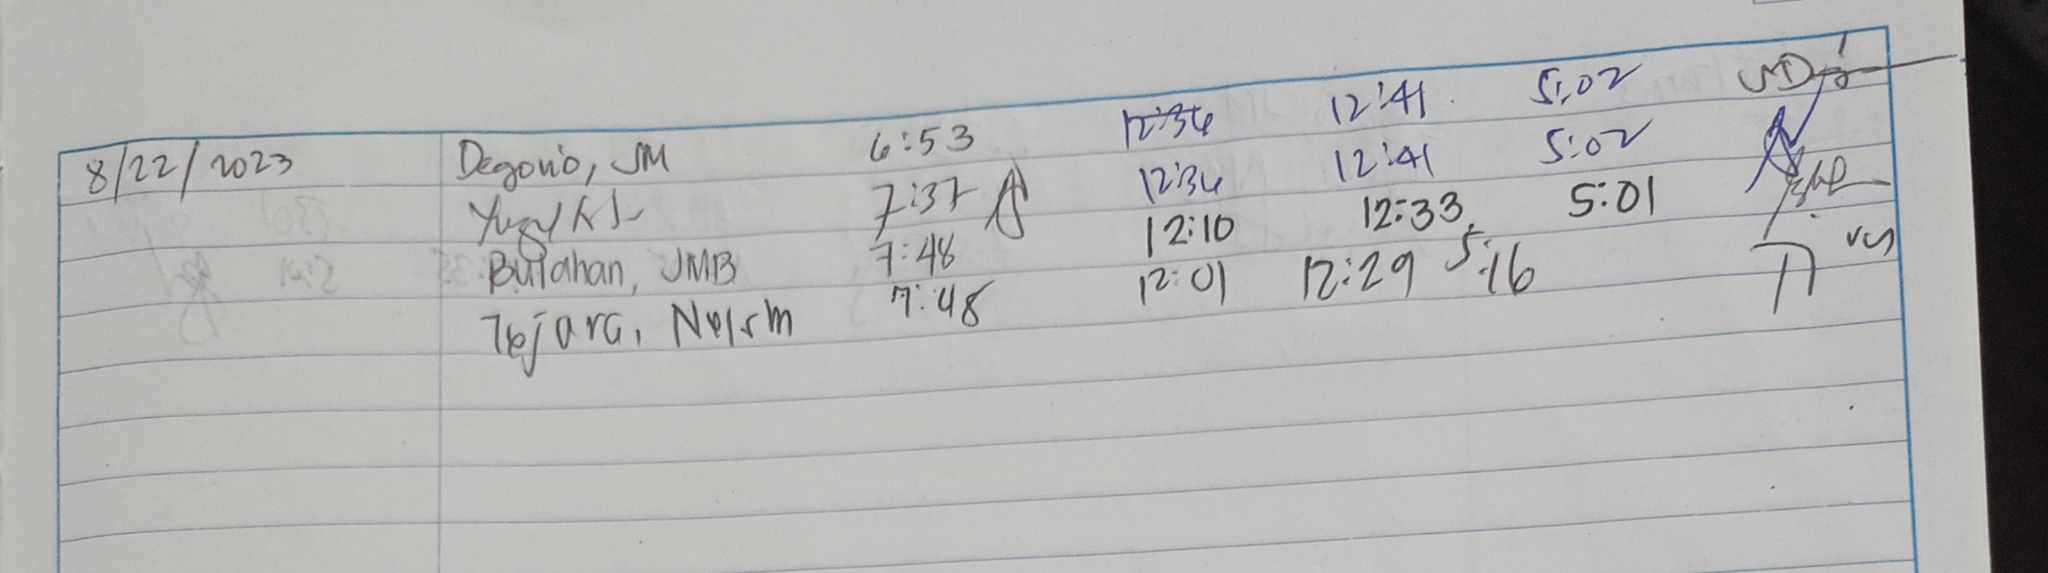 8/22/2023 Degorio, JM 6:53 12:36 12:41 5:02
7:37 12:36 12:41 5:02
Bulahan, JMB 7:48 12:10 12:33 5:01
Tejara, 7:48 12:01 12:29 5:16